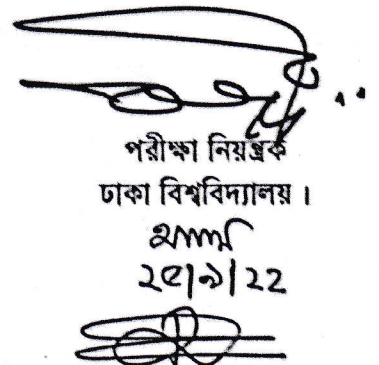 পরীক্ষা নিয়ন্ত্রক
ঢাকা বিশ্ববিদ্যালয় ।
২৫|৯|২২